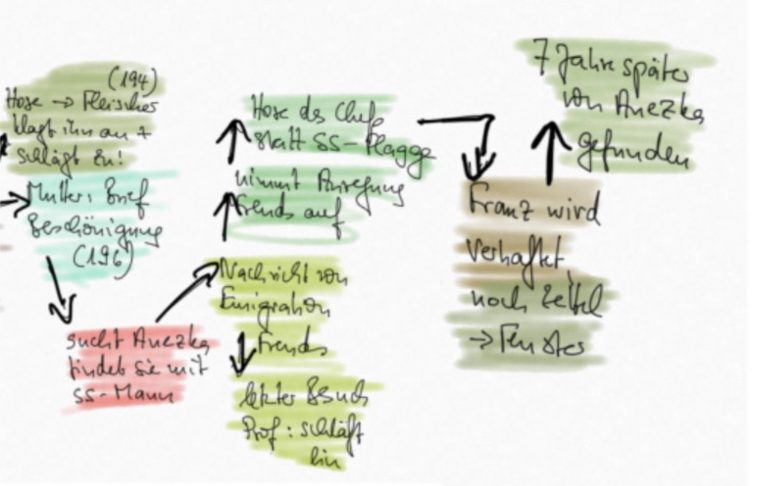 (194)
Hose → Fleischer
klagt ihn an +
schlägt zu!
Mutter: Brief
Beschönigung
(196)
sucht Anezka
findet sie mit
SS-Mann
Hose des Chefs
statt SS-Flagge
nimmt Anregung
Freuds auf
Nachricht von
Emigration
Freuds
letzter Besuch
Prof: schläft
hin
Franz wird
verhaftet,
noch Zettel
→ Fenster
7 Jahre später
von Anezka
gefunden